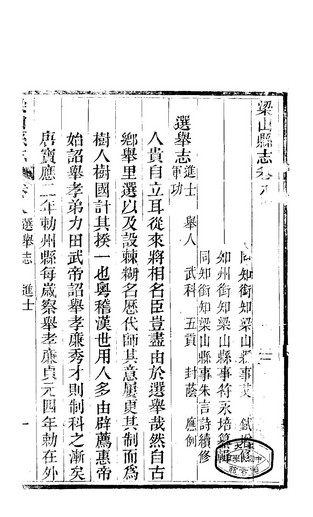 梁山縣志卷八
同知銜知梁山縣事艾
如州銜知梁山縣事符永培纂輯
同知銜知梁山縣事朱言詩續修
選舉志
進士 舉人 武科 五貢 封蔭 應例
軍功
人貴自立耳從來將相名臣豈盡由於選舉哉然自古
鄉舉里選以及設棘糊名歷代師其意屢更其制而為
樹人樹國計其揆一也粵稽漢世用人多由辟薦惠帝
始詔舉孝弟力田武帝詔舉孝廉秀才則制科之漸矣
唐寶應二年勅州縣每歲察舉孝廉貞元四年勅在外
選舉志 進士 一